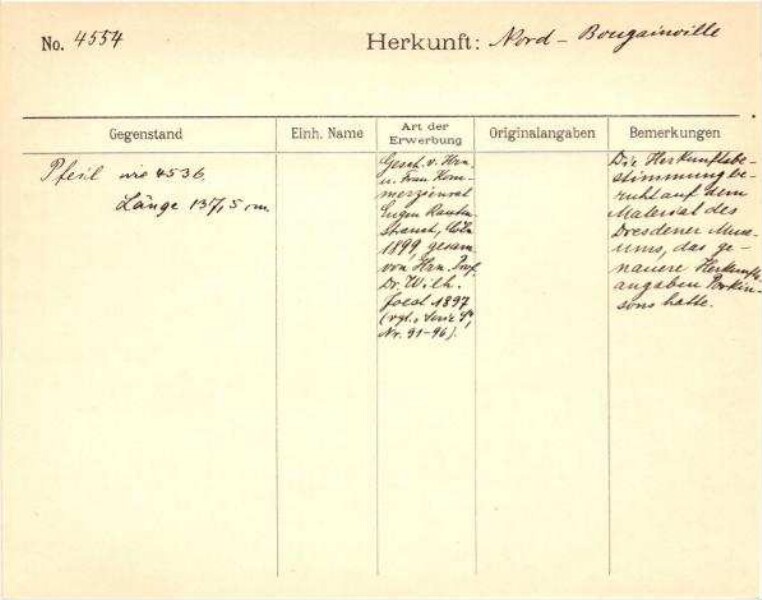 No. 4554
Herkunft: Nord-Bougainville
Gegenstand
Einh. Name
Art der Erwerbung
Originalangaben
Bemerkungen
Pfeil wie 4536.
Länge 137,5 cm.
Gesch. v. Hrn.
u. Frau Kom-
merzienrat
Eugen Rauten-
strauch, Cöln
1899, gesam.
von Hrn. Prof.
Dr. Wilh.
Joest 1897
(vgl.
Nr. 91-96).
Die Herkunftsbe-
stimmung be-
ruht auf dem
Material des
Dresdener Muse-
ums, das ge-
nauere Herkunfts-
angaben Parkin-
sons hatte.